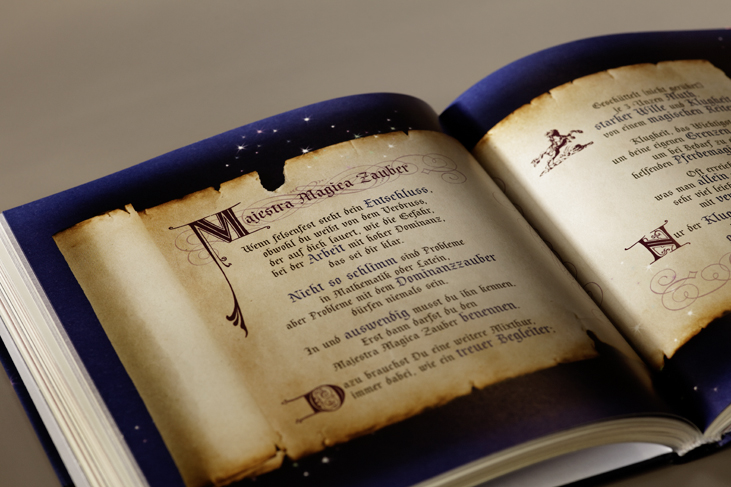 Majestra Magica Zauber
Wenn felsenfest steht dein Entschluss,
obwohl du weißt von dem Verdruss,
der auf dich lauert, wie die Gefahr,
bei der Arbeit mit hoher Dominanz,
das sei dir klar.
Nicht so schlimm sind Probleme
in Mathematik oder Latein,
aber Probleme mit dem Dominanzzauber
dürfen niemals sein.
In und auswendig musst du ihn kennen.
Erst dann darfst du den
Majestra Magica Zauber benennen.
Dazu brauchst Du eine weitere Mixtur,
immer dabei, wie ein treuer Begleiter:
Geschüttelt (nicht gerührt)
je 3 Unzen Muth
starker Wille und Klugheit
von einem magischen Reit
Klugheit, das Wichtig
um deine eigenen Grenzen
um bei Bedarf zu
helfenden Pferdemag
Oft er
was man allein
sehr viel leic
mit ver
Nur der Klug